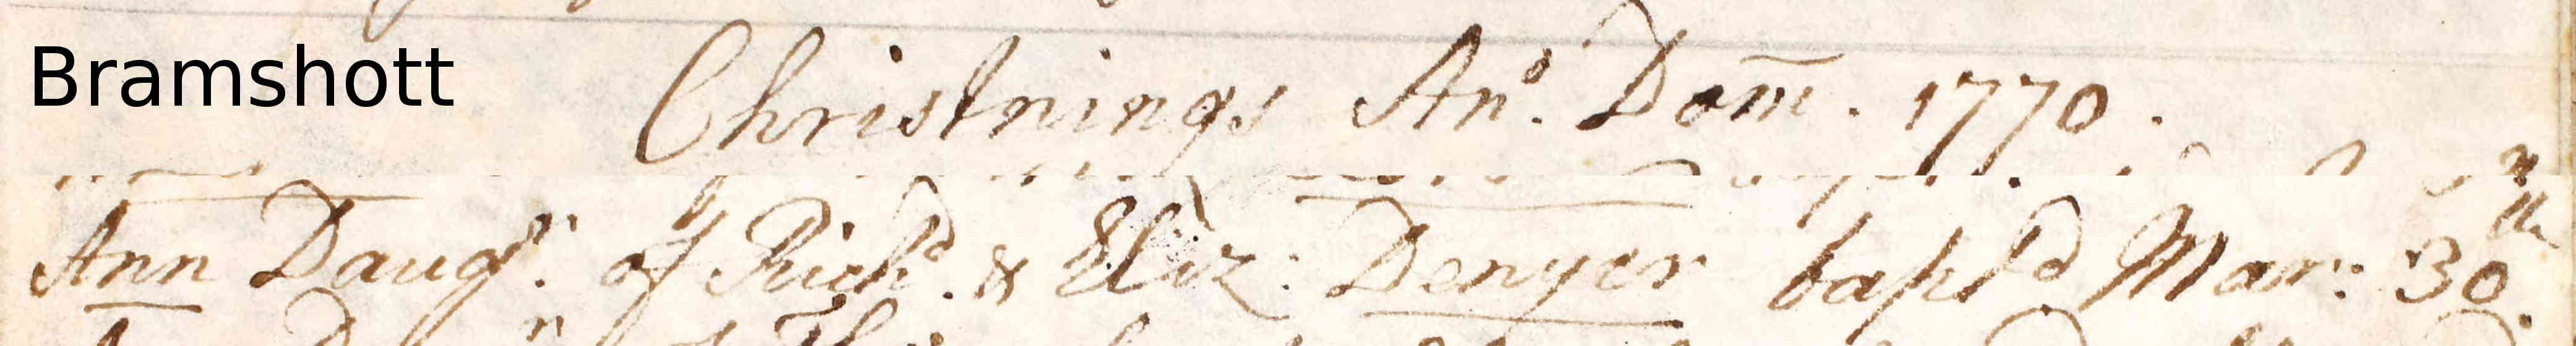 Bramshott
Christnings Ano. Dom̄. 1770.
Ann Daugr. of Richd. & Eliz: Denyer baptd Mar: 30th.